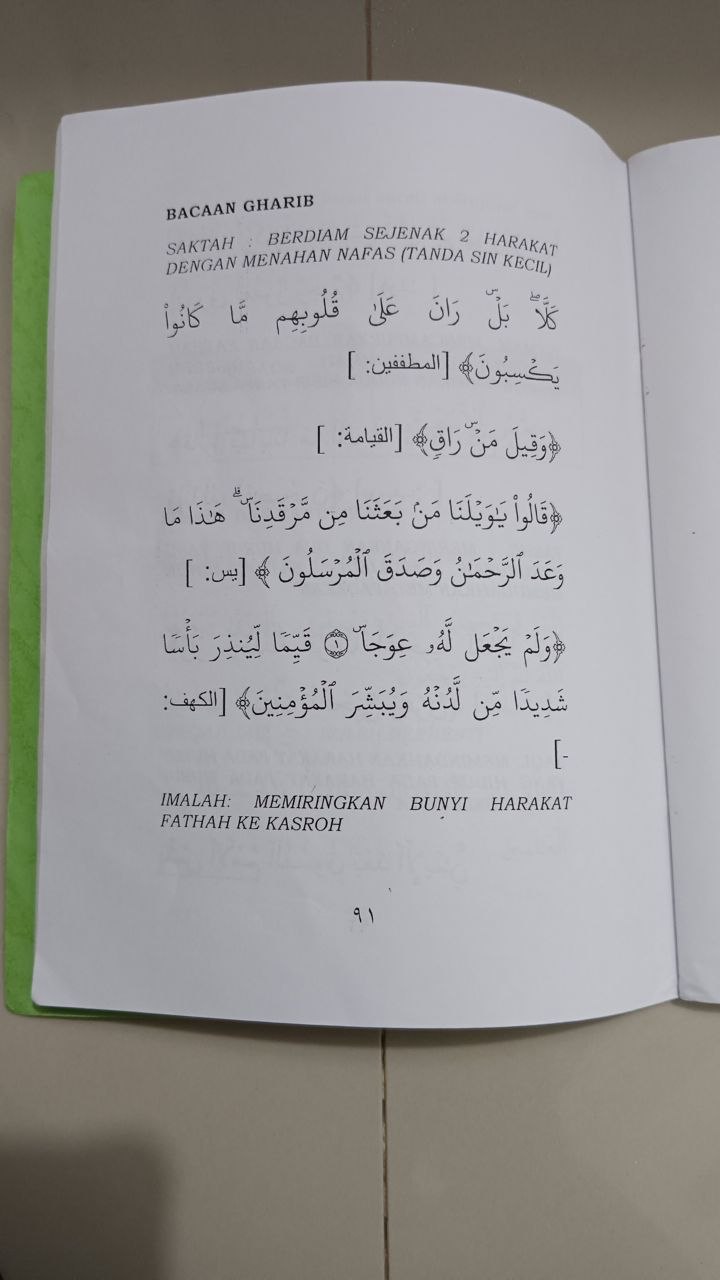 BACAAN GHARIB
SAKTAH : BERDIAM SEJENAK 2 HARAKAT
DENGAN MENAHAN NAFAS (TANDA SIN KECIL)
كَلَّاۖ بَلْۜ رَانَ عَلَىٰ قُلُوبِهِم مَّا كَانُوا۟
يَكْسِبُونَ﴾ [المطففين: ]
﴿وَقِيلَ مَنْۜ رَاقٍ﴾ [القيامة: ]
﴿قَالُوا۟ يَٰوَيْلَنَا مَنۢ بَعَثَنَا مِن مَّرْقَدِنَاۜۗ هَٰذَا مَا
وَعَدَ ٱلرَّحْمَٰنُ وَصَدَقَ ٱلْمُرْسَلُونَ ﴾ [يس: ]
﴿وَلَمْ يَجْعَل لَّهُۥ عِوَجَاۜ ١ قَيِّمًا لِّيُنذِرَ بَأْسًا
شَدِيدًا مِّن لَّدُنْهُ وَيُبَشِّرَ ٱلْمُؤْمِنِينَ﴾ [الكهف:
-]
IMALAH: MEMIRINGKAN BUNYI HARAKAT
FATHAH KE KASROH
٩١